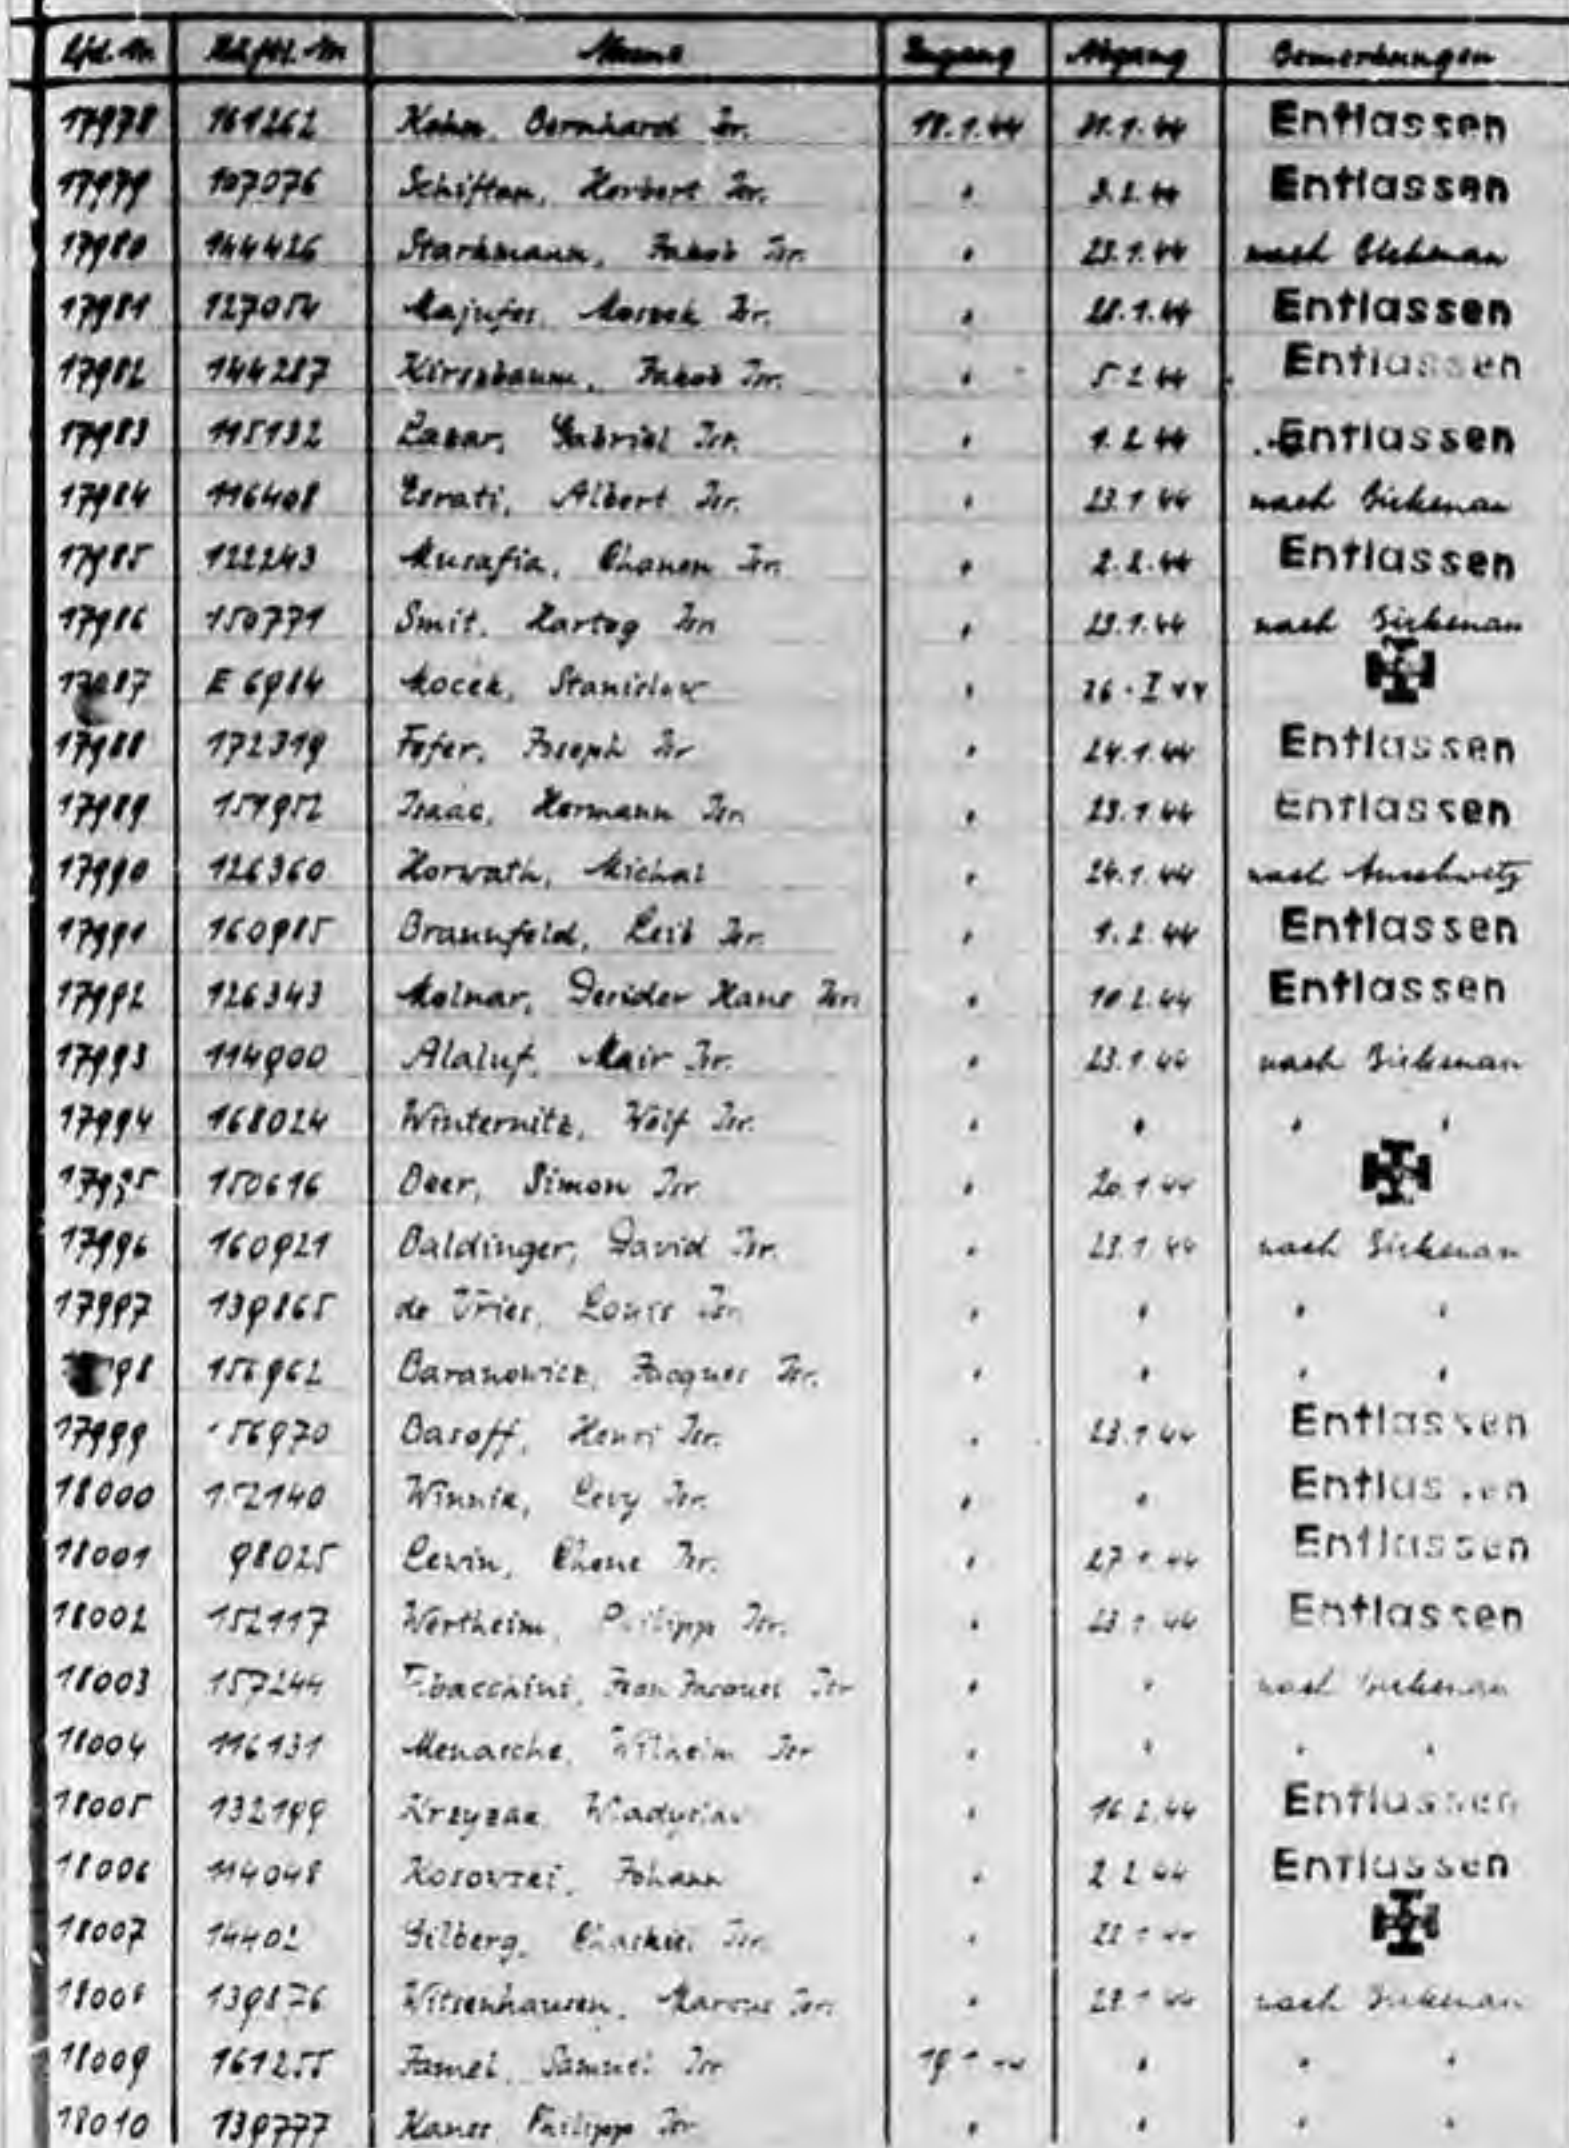 Lfd. Nr. Häftl. Nr. Name Zugang Abgang Bemerkungen
17978 161262 Kohn, Bernhard Isr. 18.1.44 31.1.44 Entlassen
17979 107076 Schiftan, Herbert Isr. " 3.2.44 Entlassen
17980 144426 Starkmann, Jakob Isr. " 23.1.44 nach Birkenau
17981 127054 Majufes, Moszek Isr. " 28.1.44 Entlassen
17982 144287 Kirszbaum, Jakob Isr. " 5 2 44 Entlassen
17983 115132 Lazar, Gabriel Isr. " 1.2 44 Entlassen
17984 116408 Esrati, Albert Isr. " 23.1 44 nach Birkenau
17985 122243 Musafia, Chanen Isr. " 2.2.44 Entlassen
17986 150771 Smit, Hartog Isr. " 23.1.44 nach Birkenau
17987 E 6984 Mocek, Stanislaw " 26 · I 44
17988 172319 Fefer, Joseph Isr " 24.1.44 Entlassen
17989 151952 Isaac, Hermann Isr. " 23.1.44 Entlassen
17990 126360 Horwath, Michal " 24.1.44 nach Auschwitz
17991 160985 Braunfeld, Leib Isr. " 1.2.44 Entlassen
17992 126343 Molnar, Desider Hans Isr. " 10.2.44 Entlassen
17993 114900 Alaluf, Mair Isr. " 23.1.44 nach Birkenau
17994 168024 Winternitz, Wolf Isr. " " " "
17995 150616 Beer, Simon Isr " 20.1 44
17996 160921 Baldinger, David Isr. " 23.1.44 nach Birkenau
17997 139865 de Vries, Louis Isr. " " " "
98 156962 Baranowicz, Jacques Isr. " " " "
17999 56970 Basoff, Henri Isr. " 23.1.44 Entlassen
18000 152140 Winnik, Levy Isr. " " Entlassen
18001 98025 Lewin, Chone Isr. " 27 1.44 Entlassen
18002 152117 Wertheim, Philipp Isr. " 23 1.44 Entlassen
18003 157244 Jean Jacques Isr " " nach Birkenau
18004 116131 Menasche, Wilhelm Isr " " " "
18005 132199 Krzyzak Wladyslaw " 16 2.44 Entlassen
18006 114048 Kosowski, Johann " 2 2 44 Entlassen
18007 14402 Gilberg, Isr. " 22 1 44
18008 139876 Witsenhausen, Marcus Isr. " 23 1 44 nach Birkenau
18009 161255 Famel, Samuel Isr 19 1 44 " " "
18010 139777 Philipp Isr " " " "